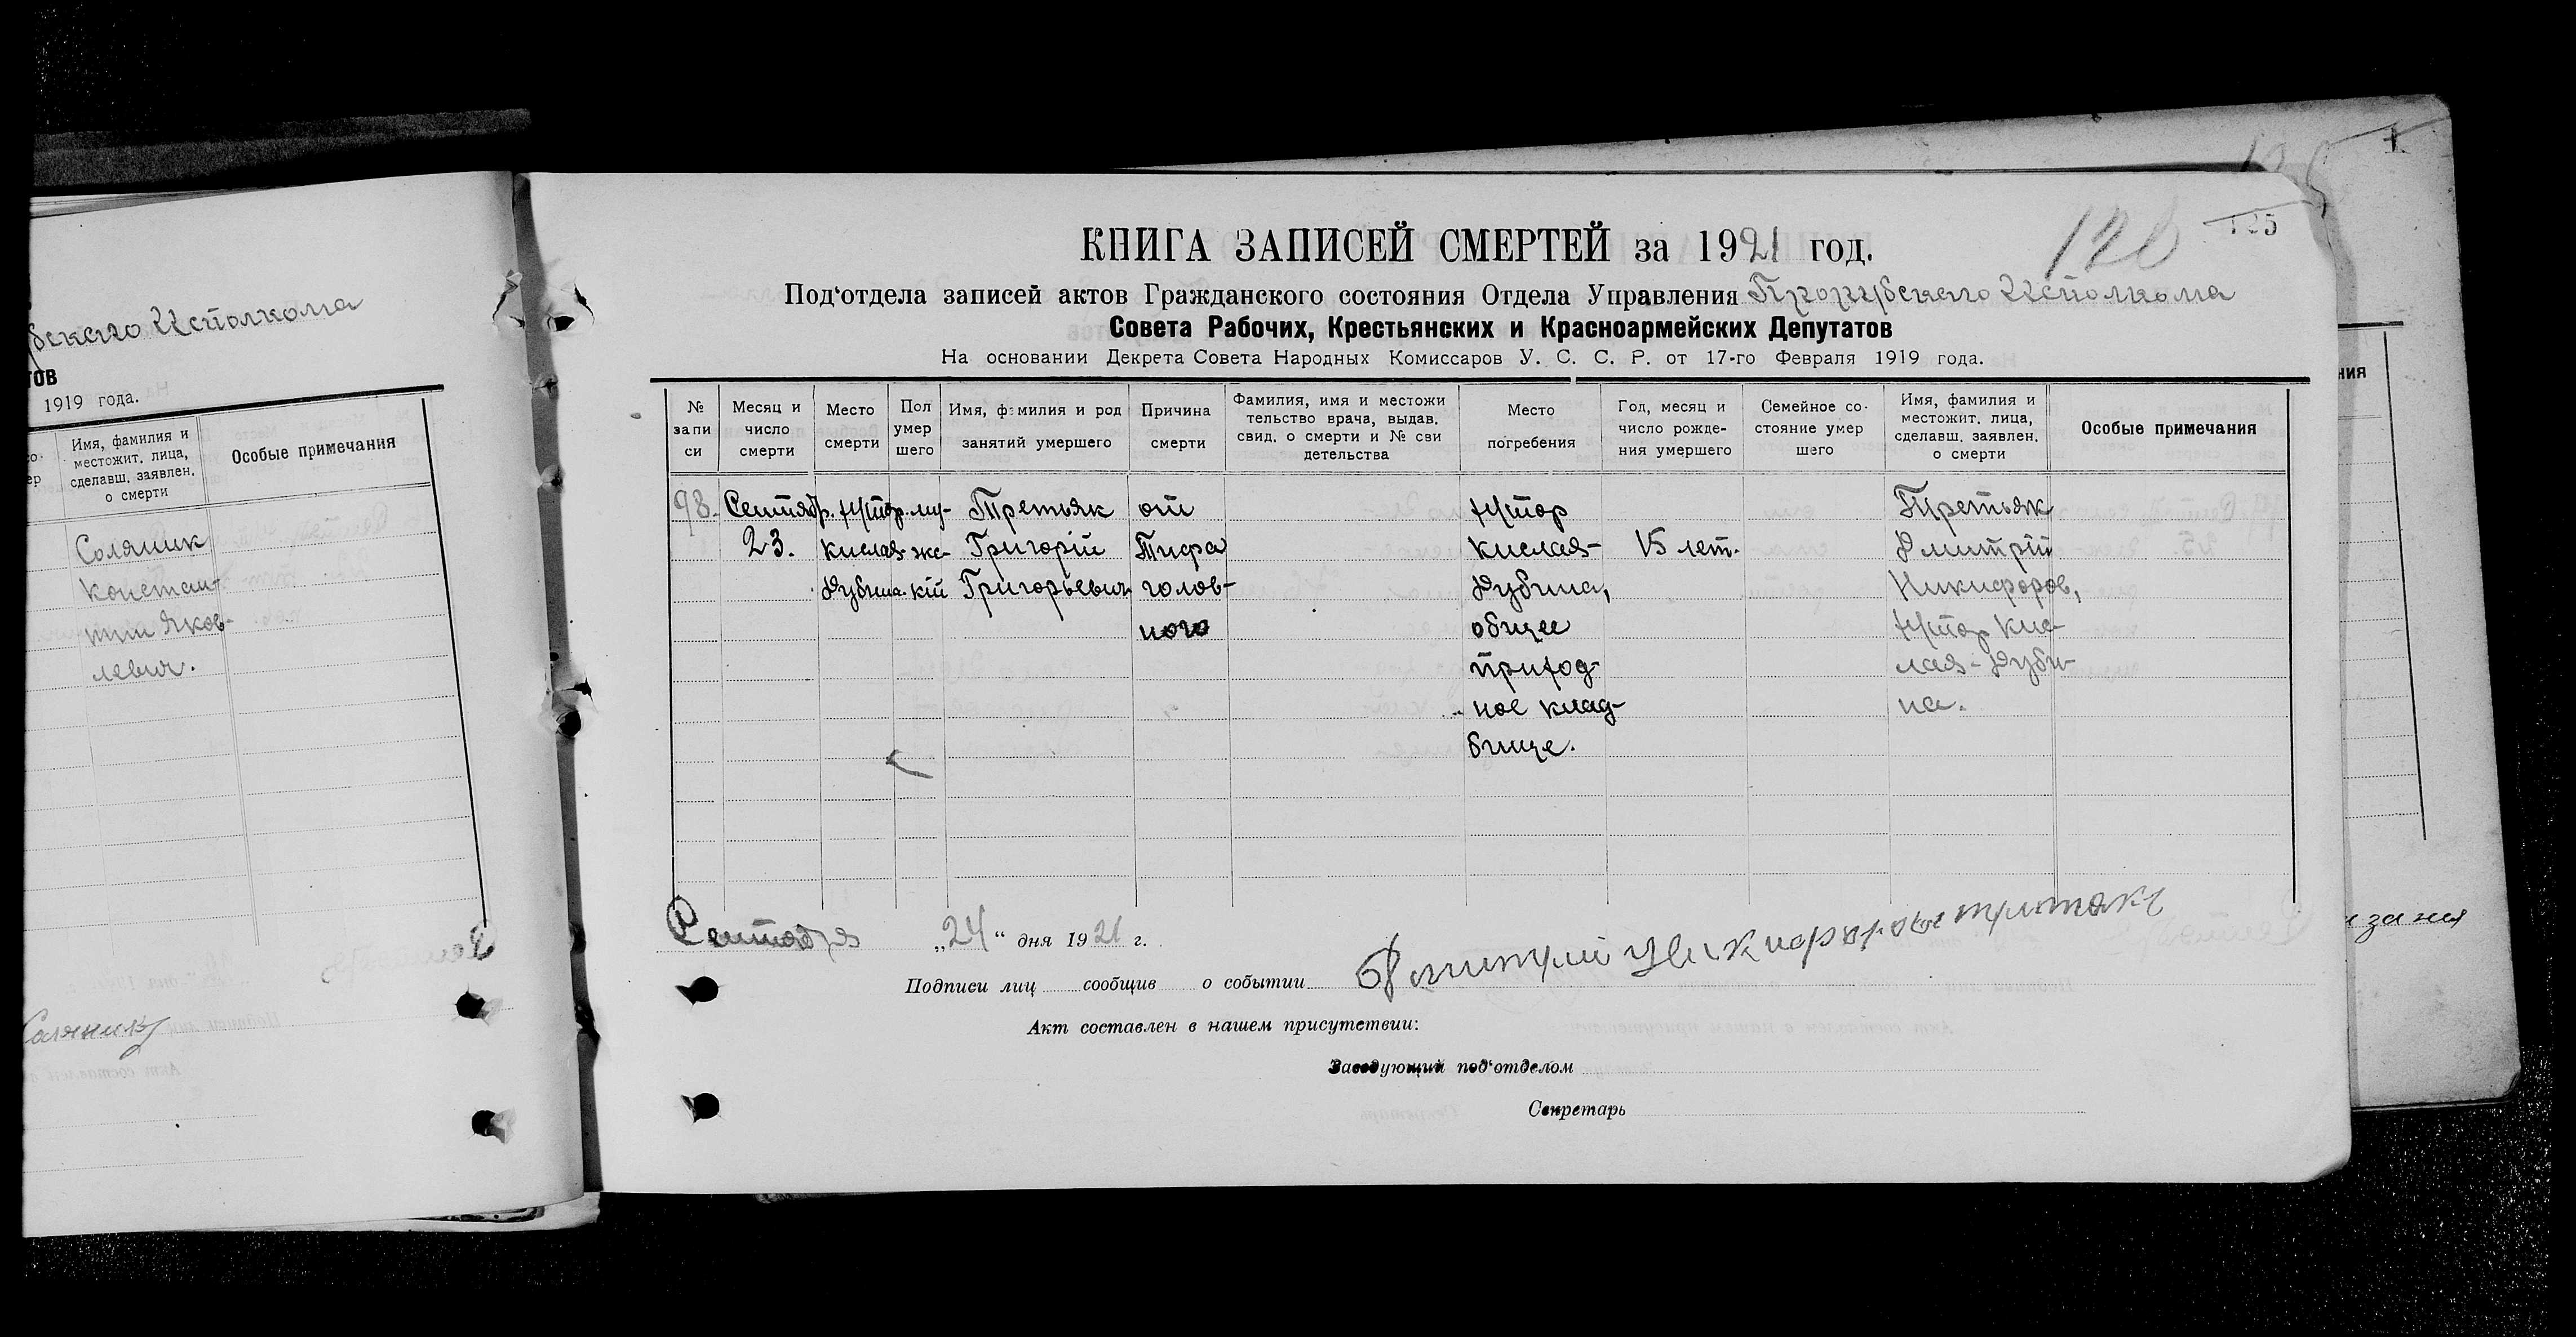 бского Исполкома
тов
1919 года.
Имя, фамилия и
местожит. лица,
сделавш. заявлен.
о смерти
Особые примечания
Соляник
Констан-
тин Яков-
левич.
Соляник
125
120
КНИГА ЗАПИСЕЙ СМЕРТЕЙ за 1921 год.
Под‘отдела записей актов Гражданского состояния Отдела Управления Исполкома
Совета Рабочих, Крестьянских и Красноармейских Депутатов
На основании Декрета Совета Народных Комиссаров У. С. С. Р. от 17-го Февраля 1919 года.
№ запи си
Месяц и число смерти
Место смерти
Пол умер шего
Имя, фамилия и род занятий умершего
Причина смерти
Фамилия, имя и местожи тельство врача, выдав. свид. о смерти и № сви детельства
Место погребения
Год, месяц и число рожде- ния умершего
Семейное со- стояние умер шего
Имя, фамилия и местожит. лица, сделавш. заявлен. о смерти
Особые примечания
98. Сентябр. Хутор. му- Третьяк от Хутор Третьяк
23. Кислая- жс- Григорій Тифа Кислая- 15 лет. Дмитрій
Дубина. кій Григорьевич голов- Дубина, Никифоров,
ного общее Хутор Кис-
приход- лая-Дуби-
ное клад- на.
бище.
Сентября „24“ дня 1921 г.
Подписи лиц сообщив о событии Дмитрий
Акт составлен в нашем присутствии:
Заведующий под‘отделом
Секретарь
ния